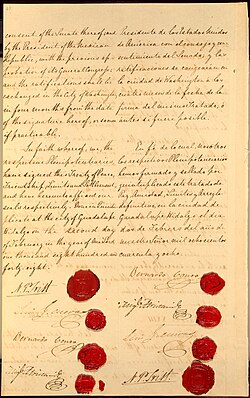 consent of the Senate thereof; and
by the President of the Mexican
Republic, with the previous ap-
probation of its General Congress;
and the ratifications shall be ex-
changed in the City of Washington
in four months from the date
of the signature hereof, or sooner
if practicable.
In faith whereof, we, the
respective Plenipotentiaries,
have signed this Treaty of Peace,
Friendship, Limits and Settlement,
and have hereunto affixed our
seals respectively. Done in Quintu-
plicate at the city of Guadalupe
Hidalgo on the second day
of February in the year of
one thousand eight hundred and
forty eight.
N. P. Trist
Luis G. Cuevas
Bernardo Couto
Migl. Atristain
Presidente de los Estados Unidos
de America, con el consejo y con-
sentimiento del Senado; y las
ratificaciones se canjearan en
la ciudad de Washington a los
cuatro meses de la fecha de la
firma del mismo tratado, o
antes si fuere posible.
En fe de lo cual nosotros
los respectivos Plenipotenciarios
hemos firmado y sellado por
quintuplicado este tratado de
Paz, Amistad, Limites y Arreglo
definitivo, en la ciudad de
Guadalupe Hidalgo el dia
dos de Febrero del año de
nuestro Señor mil ochocientos
cuarenta y ocho.
Bernardo Couto
Migl. Atristain
Luis G. Cuevas
N. P. Trist